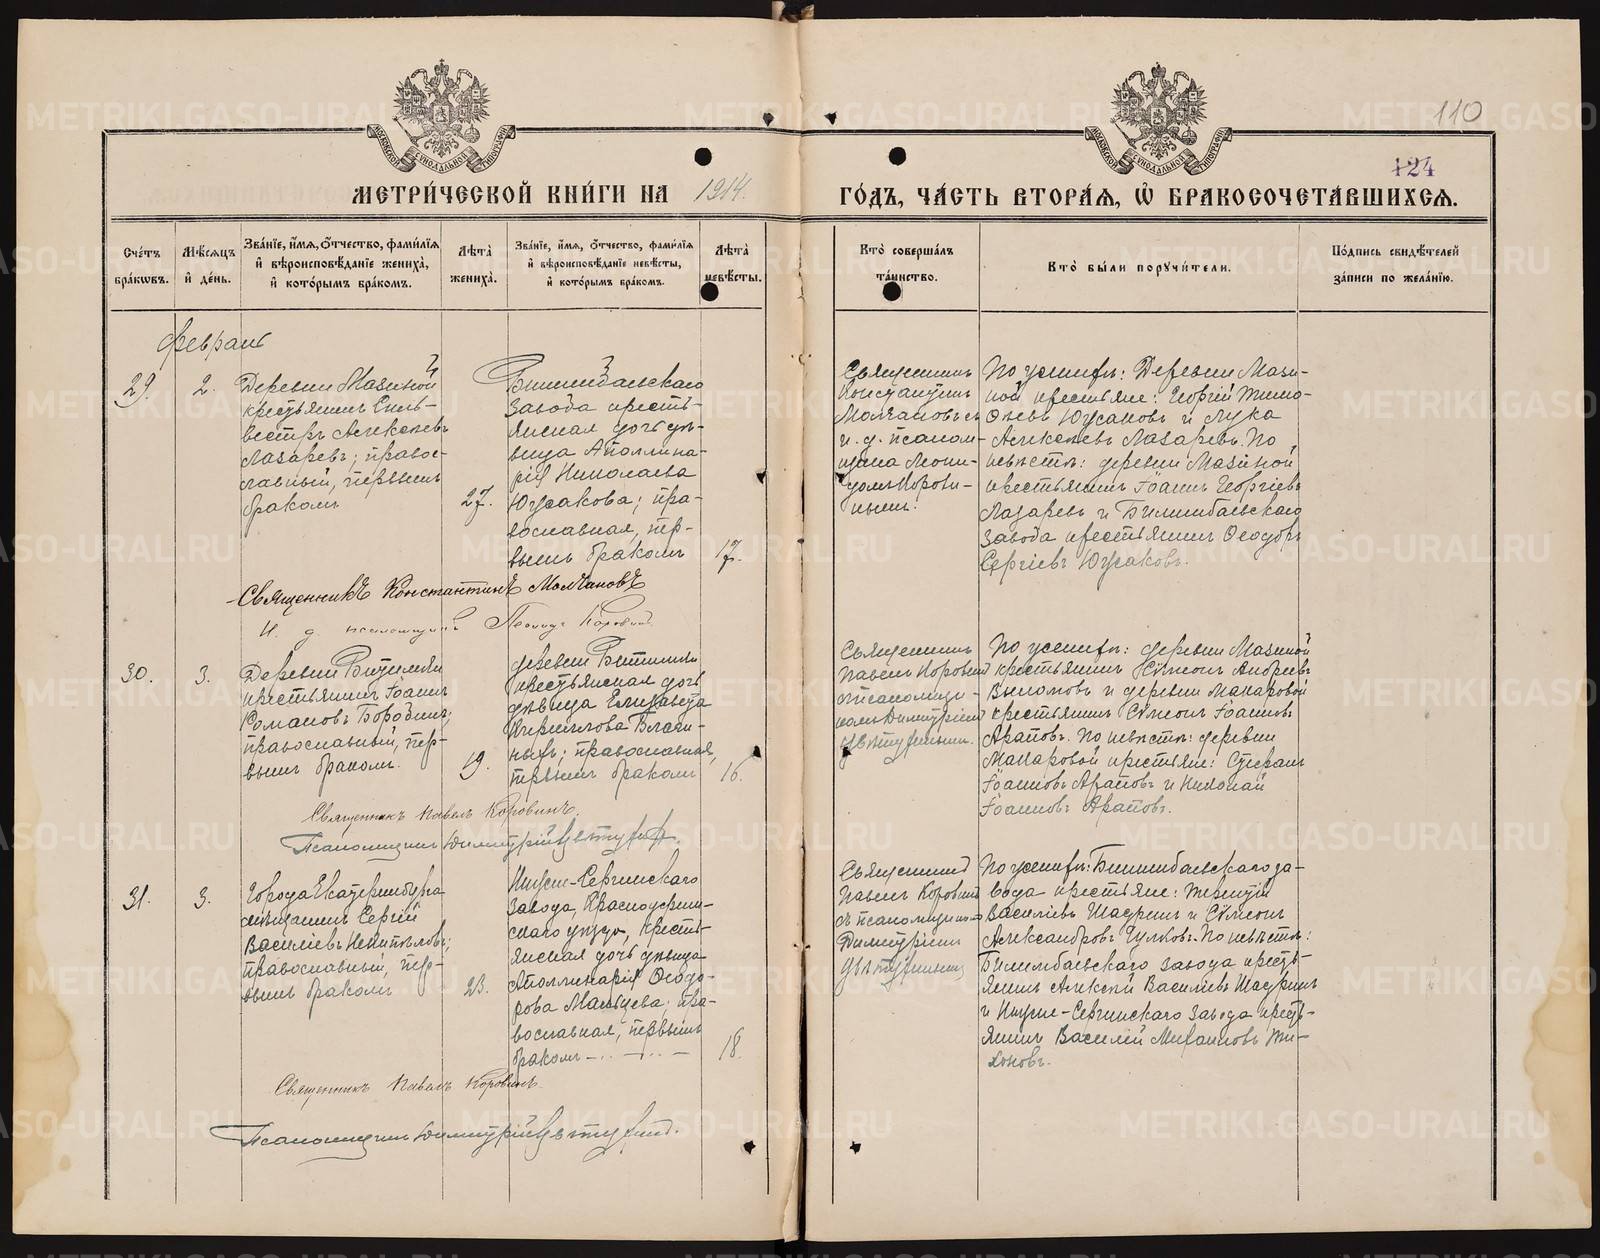 110
124
МОСКОВСКОЙ СѴНОДАЛЬНОЙ ТИПОГРАФІИ
МОСКОВСКОЙ СѴНОДАЛЬНОЙ ТИПОГРАФІИ
МЕТРИ́ЧЕСКОЙ КНИ́ГИ НА 1914. ГО́ДЪ, ЧА́СТЬ ВТОРА́Я, Ѡ БРАКОСОЧЕТА́ВШИХСЯ.
Сче́тъ бра́ковъ.
Мѣ́сяцъ и де́нь.
Зва́ніе, и́мя, о́тчество, фами́лія и вѣроисповѣ́даніе жениха̀, и кото́рымъ бра́комъ.
Лѣ́та жениха̀.
Зва́ніе, и́мя, о́тчество, фами́лія и вѣроисповѣ́даніе невѣ́сты, и кото́рымъ бра́комъ.
Лѣ́та невѣ́сты.
Кто̀ соверша́лъ та́инство.
Кто̀ бы́ли поручи́тели.
По́дпись свидѣ́телей за́писи по жела́нію.
Февраль
29.
2.
Деревни Мазиной
крестьянинъ Силь-
вестръ Алексѣевъ
Лазаревъ; право-
славный, первымъ
бракомъ
27.
Билимбаевскаго
завода кресть-
янская дочь дѣ-
вица Аполлина-
рія Николаева
Южакова; пра-
вославная, пер-
вымъ бракомъ
17.
Священникъ
Константинъ
Молчановъ съ
и. д. псалом-
щика Леони-
домъ Корови-
нымъ.
По женихѣ: Деревни Мази-
ной крестьяне: Георгій Тимо-
Южаковъ и Лука
Алексѣевъ Лазаревъ. По
невѣстѣ: деревни Мазиной
крестьянинъ Іоаннъ Георгіевъ
Лазаревъ и Билимбаевскаго
завода крестьянинъ Ѳеодоръ
Сергіевъ Южаковъ.
Священникъ Константинъ Молчановъ
И. д. псаломщика Леонидъ Коровинъ
30.
3.
Деревни
крестьянинъ Іоаннъ
Романовъ Бородинъ;
православный, пер-
вымъ бракомъ.
19.
деревни
крестьянская дочь
дѣвица Елизавета
Кириллова
православная,
первымъ бракомъ
16.
Священникъ
Павелъ Коровинъ
съ псаломщи-
комъ Димитріемъ
По женихѣ: деревни Мазиной
крестьянинъ Сѵмеонъ Андреевъ
и деревни Макаровой
крестьянинъ Сѵмеонъ Іоанновъ
Араповъ. По невѣстѣ: деревни
Макаровой крестьяне: Стефанъ
Іоанновъ Араповъ и Николай
Іоанновъ Араповъ.
Священникъ Павелъ Коровинъ.
Псаломщикъ Димитрій
31.
3.
Города Екатеринбурга
мѣщанинъ Сергій
Василіевъ
православный, пер-
вымъ бракомъ
23.
Нижне-Сергинскаго
завода, Красноуфим-
скаго уѣзда, кресть-
янская дочь дѣвица
Аполлинарія Ѳеодо-
рова Мальцева; пра-
вославная, первымъ
бракомъ
18.
Священникъ
Павелъ Коровинъ
съ псаломщикомъ
Димитріемъ
По женихѣ: Билимбаевскаго за-
вода крестьяне: Терентій
Василіевъ Шадринъ и Сѵмеонъ
Александровъ Гулковъ. По невѣстѣ:
Билимбаевскаго завода кресть-
янинъ Алексій Василіевъ Шадринъ
и Нижне-Сергинскаго завода кресть-
янинъ Василій Михаиловъ Ти-
хоновъ.
Священникъ Павелъ Коровинъ.
Псаломщикъ Димитрій
METRIKI.GASO-URAL.RU